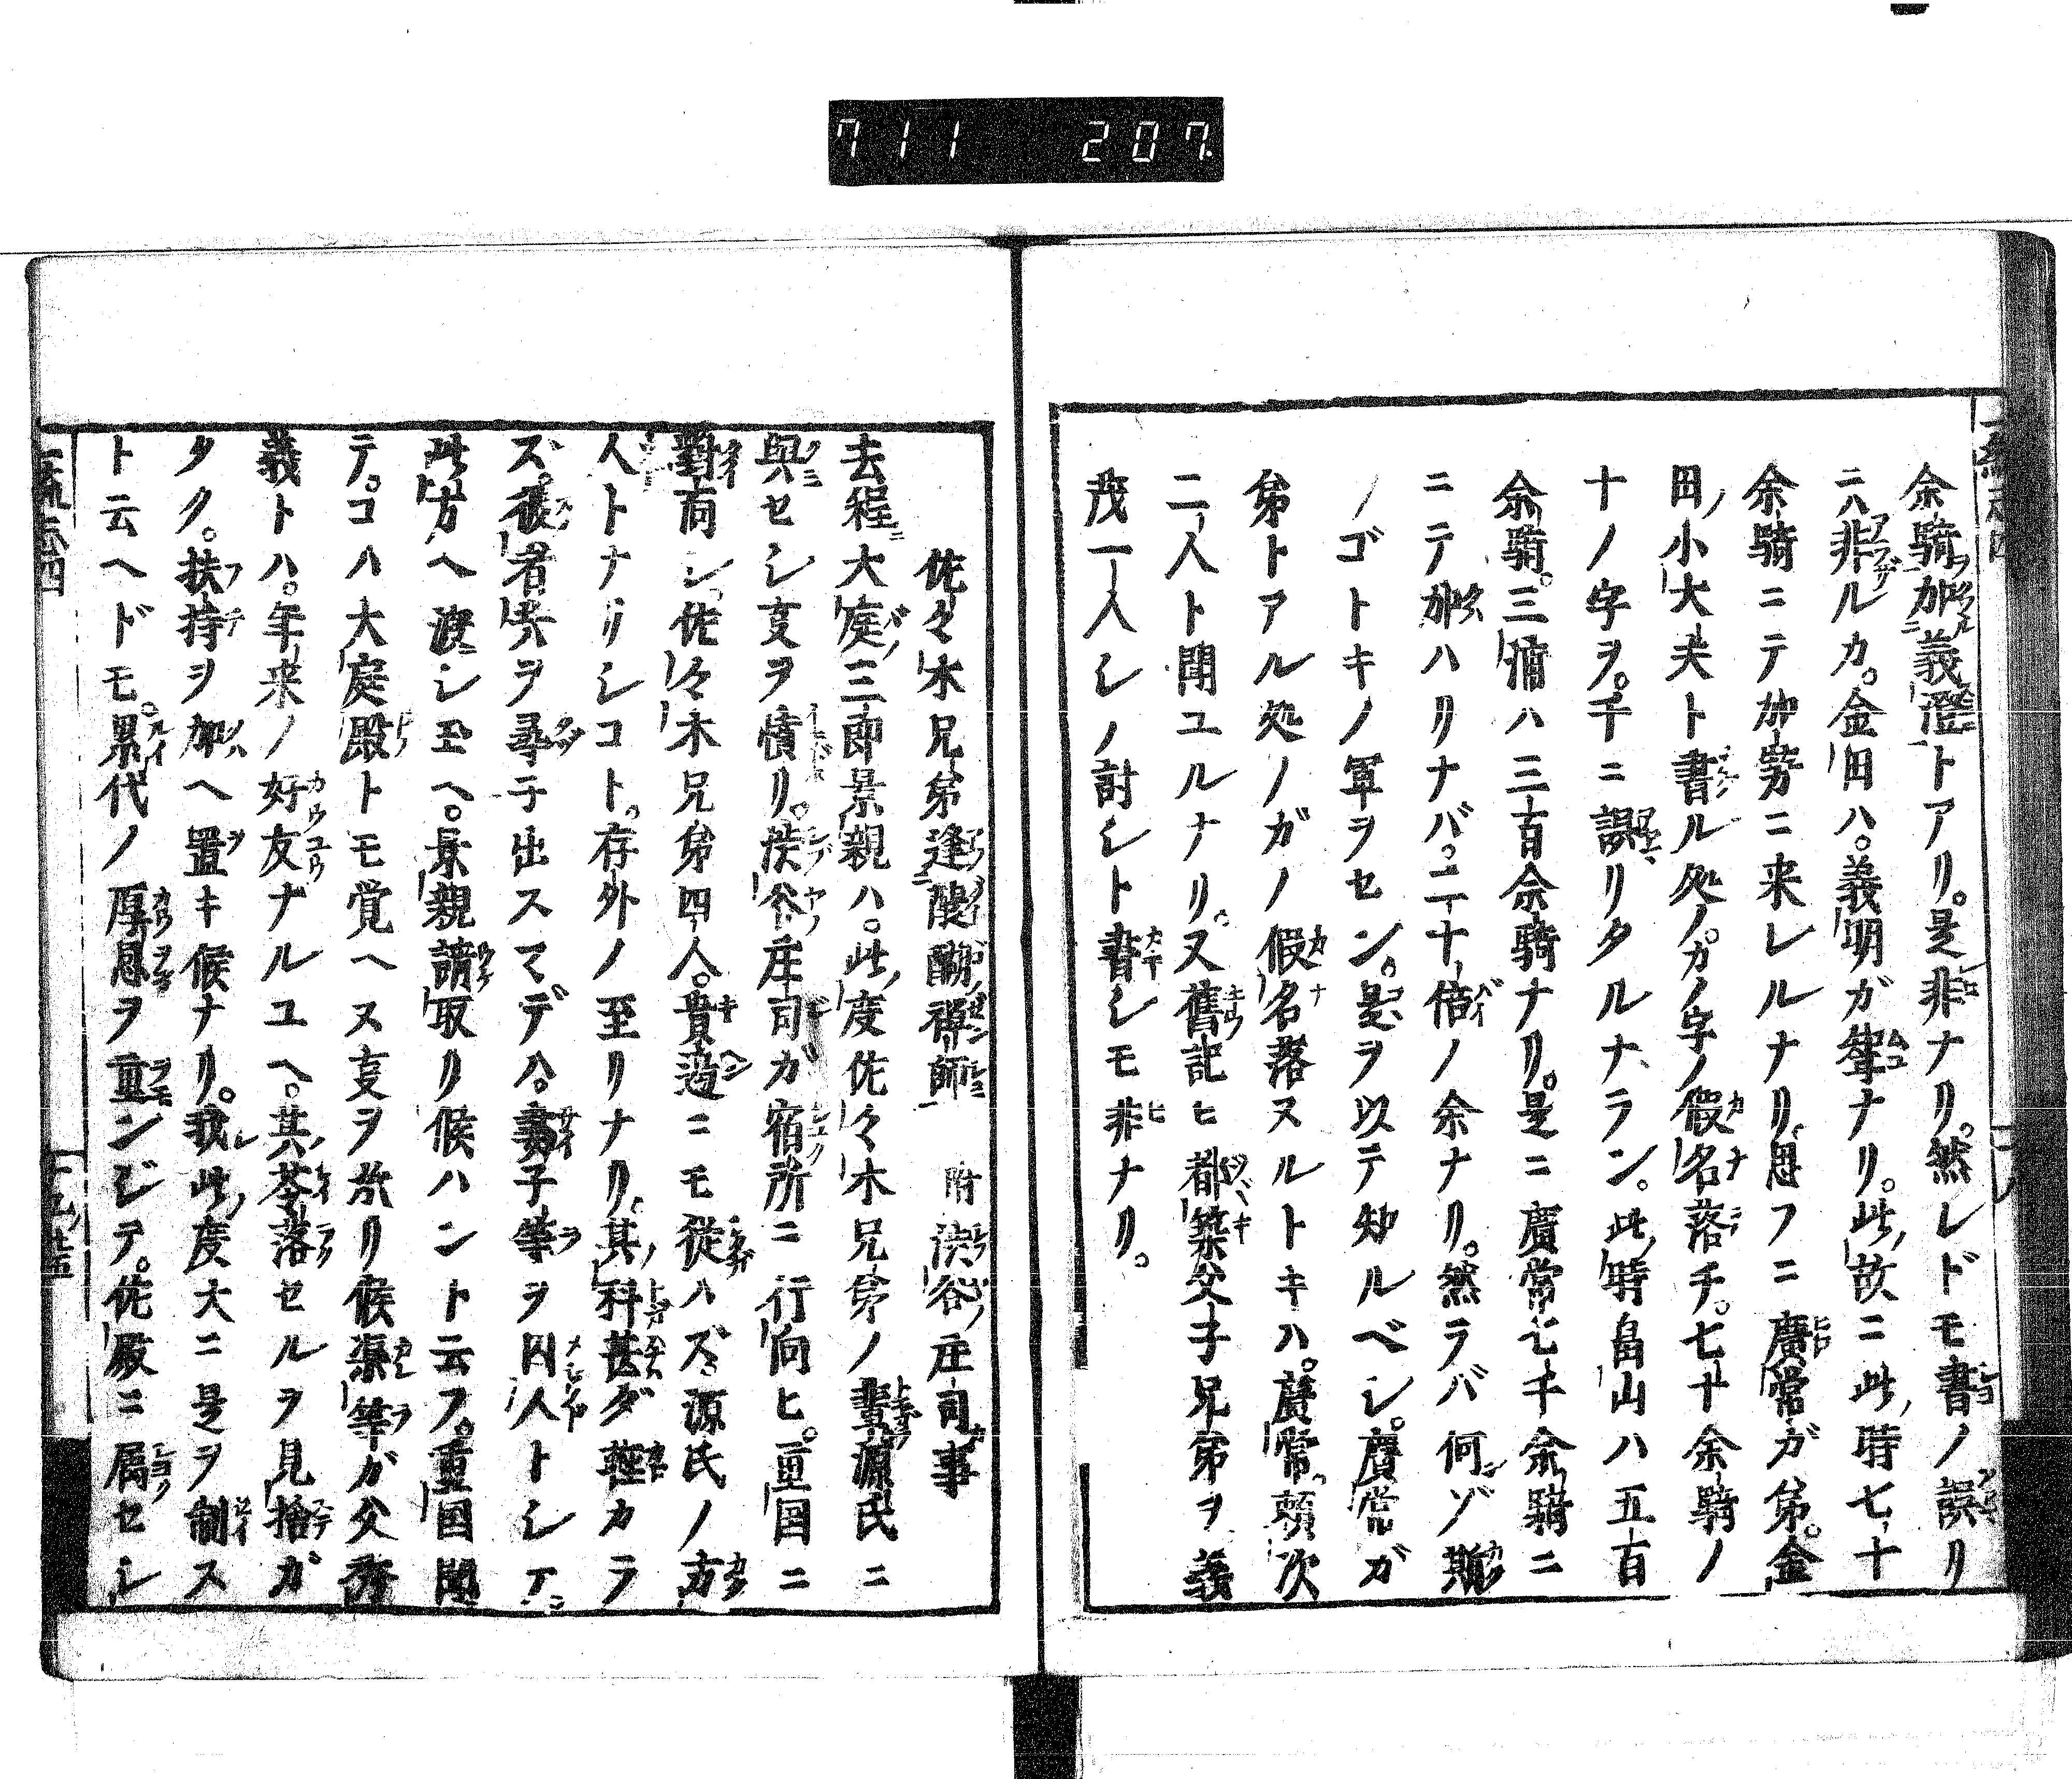 711 207.
余騎加義澄トアリ。是非ナリ。然レドモ書ノ誤リ
ニハ非ルカ。金田ハ。義明ガ聟ナリ。此故ニ此時七十
余騎ニテ加勢ニ来レルナリ。思フニ廣常ガ弟。金
田小大夫ト書ル処ノ。カノ字ノ假名落チ。七十余騎ノ
十ノ字ヲ。千ニ誤リタルナラン。此時畠山ハ五百
余騎。三浦ハ三百余騎ナリ。是ニ廣常七千余騎ニ
ニテ加ハリナバ。二十倍ノ余ナリ。然ラバ何ゾ斯
ノゴトキノ軍ヲセン。是ヲ以テ知ルベシ。廣常ガ
弟トアル処ノガノ假名落ヌルトキハ。廣常。頼次
二人ト聞ユルナリ。又舊記ヒ都築父子兄弟ヲ義
茂一人シノ討シト書シモ非ナリ。
佐々木兄弟逢醍醐禅師 附渋谷庄司事
去程大庭三郎景親ハ。此度佐々木兄弟ノ輩源氏ニ
與セシ支ヲ憤リ。渋谷庄司ガ宿所ニ行向ヒ。重国ニ
對向シ。佐々木兄弟四人。貴邊ニモ從ハズ。源氏ノ方
人トナリシコト。存外ノ至リナリ。其科甚ダ軽カラ
ズ。彼者共ヲ尋子出スマデハ。妻子等ヲ囚人トシテ。
此方ヘ渡シ玉ヘ。景親請取リ候ハント云フ。重国聞
テ。コハ大庭殿トモ覚ヘヌ支ヲ放リ候。渠等ガ父秀
義トハ。年来ノ好友ナルユヘ。其苓落セルヲ見捨ガ
タク。扶持ヲ加ヘ置キ候ナリ。我此度大ニ是ヲ制ス
ト云ヘドモ。累代ノ厚恩ヲ重ンジテ。佐殿ニ属セシ